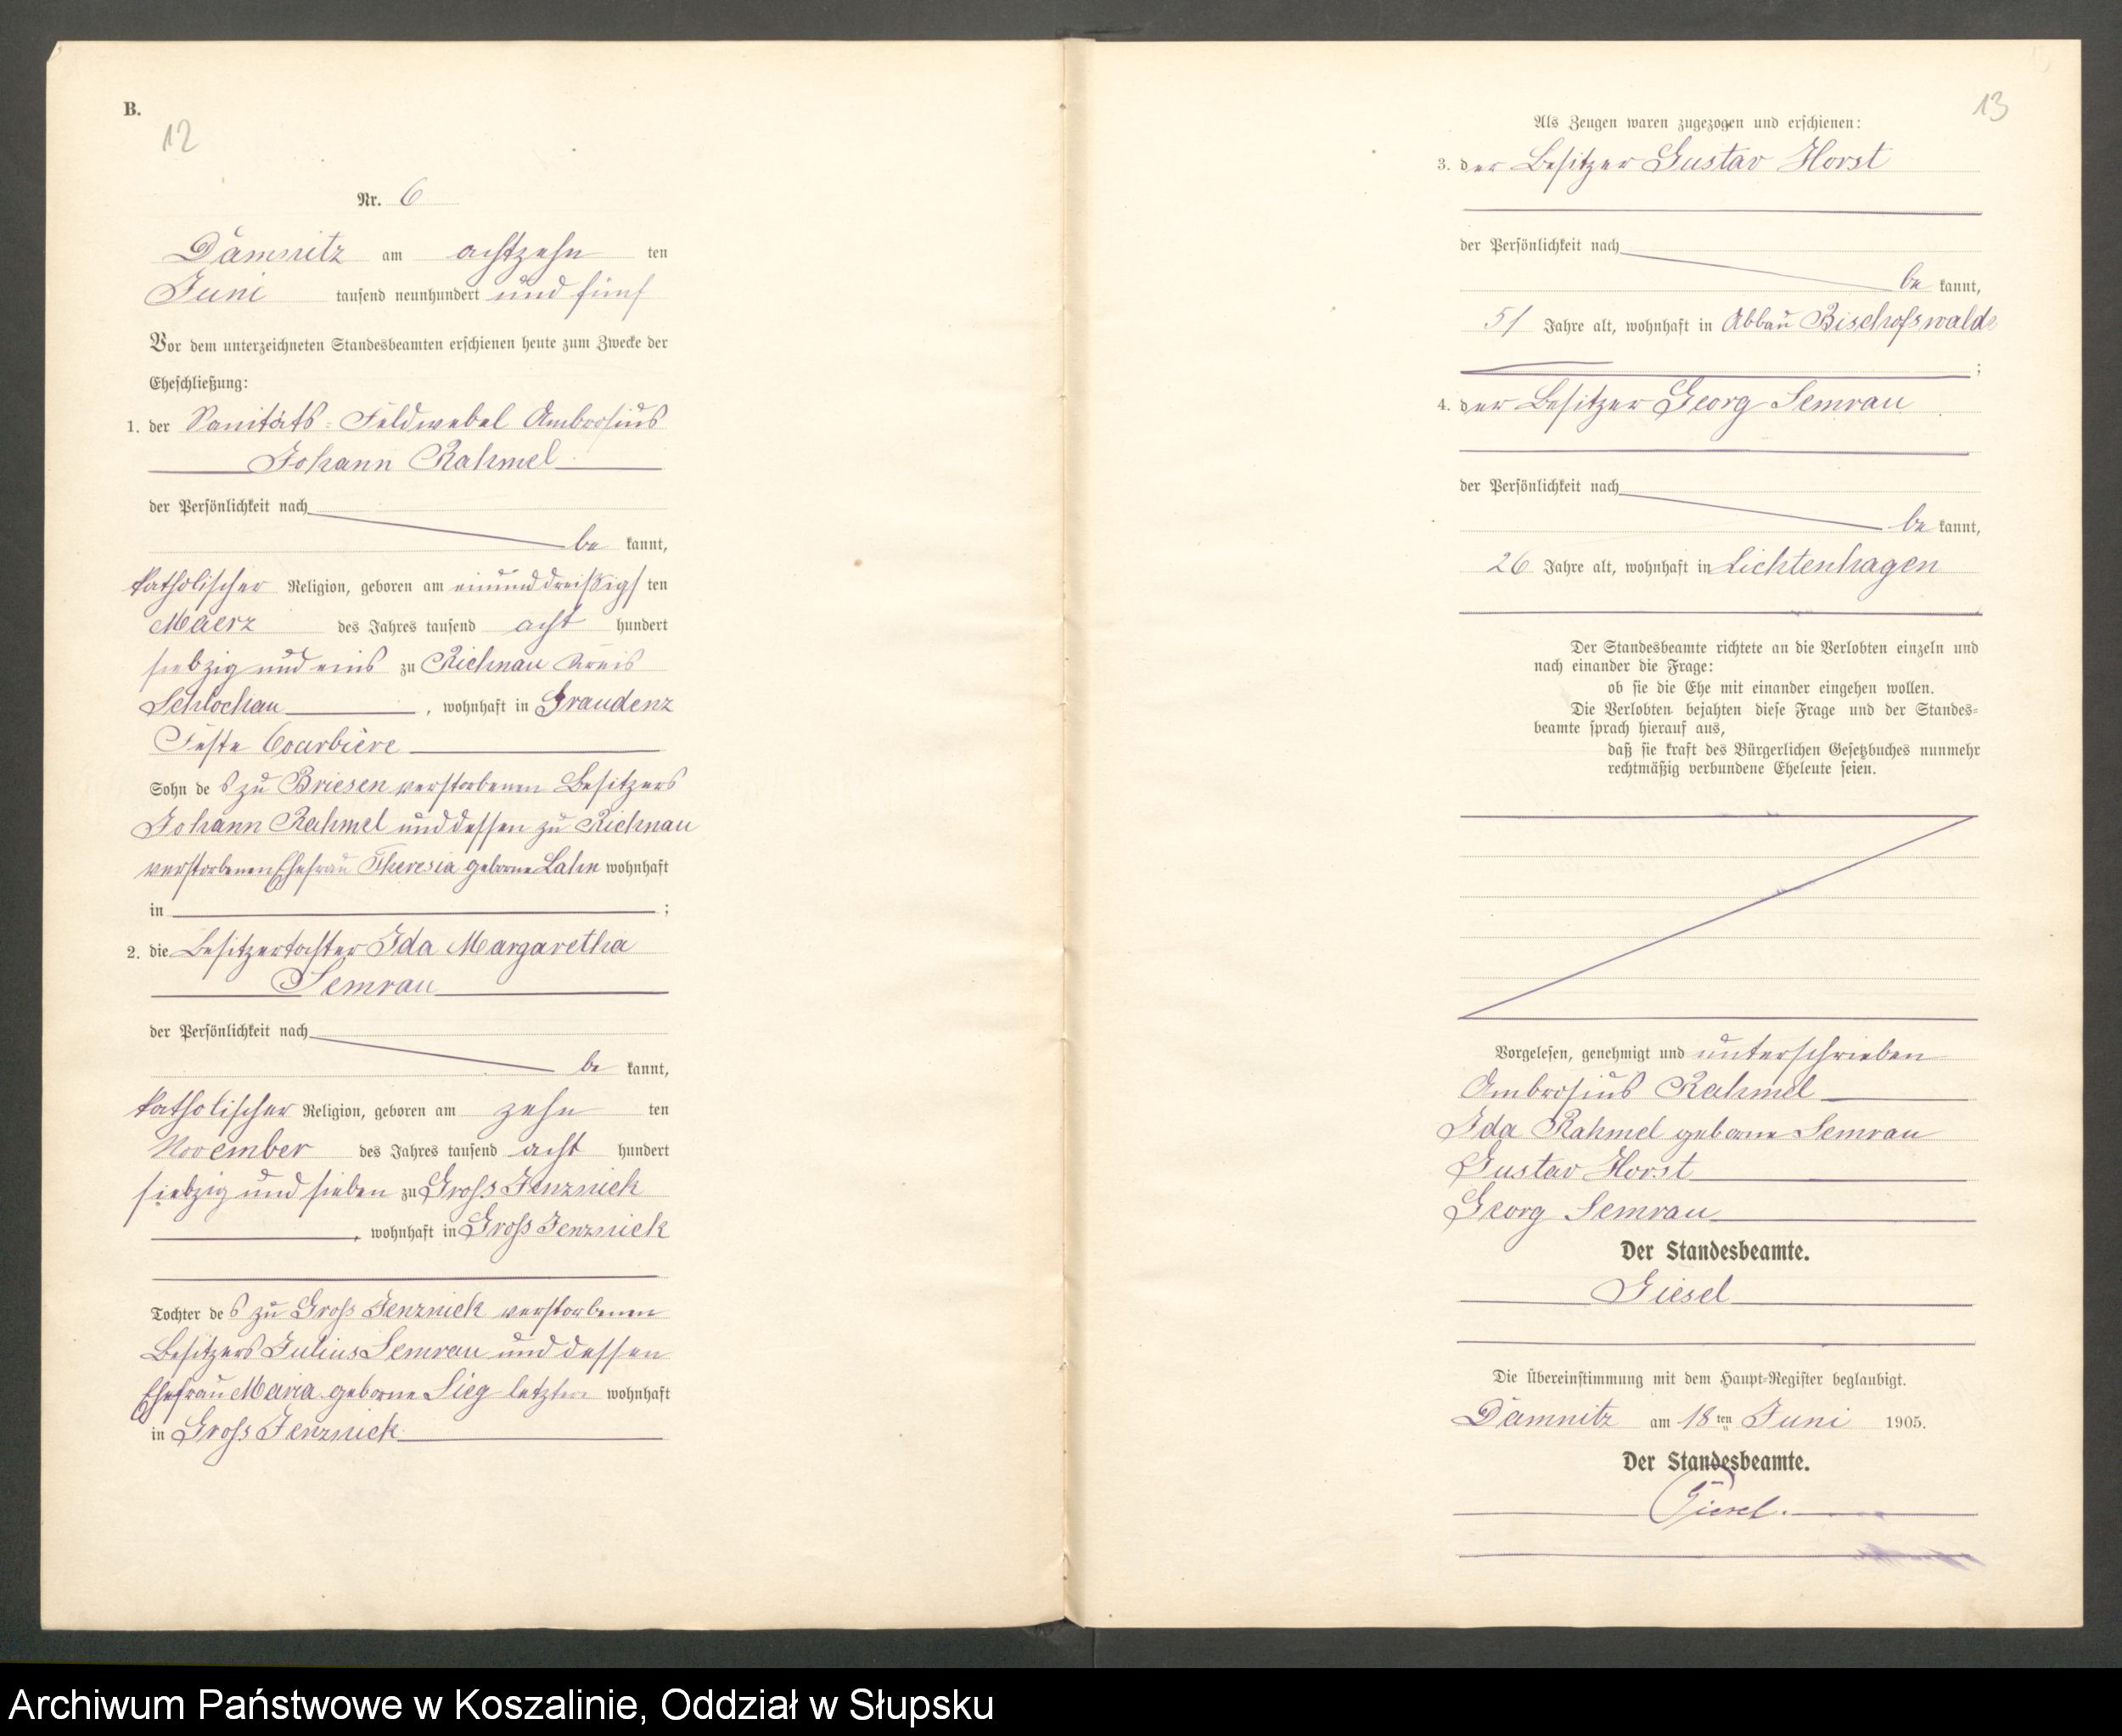 B.
12
Nr. 6
Damnitz am achtzehn ten
Juni tausend neunhundert und fünf
Vor dem unterzeichneten Standesbeamten erschienen heute zum Zwecke der
Eheschließung:
1. der Sanitäts-Feldwebel Ambrosius
Johann Rahmel
der Persönlichkeit nach
be kannt,
katholischer Religion, geboren am einunddreißigs ten
Maerz des Jahres tausend acht hundert
siebzig und eins zu Richnau Kreis
Schlochau, wohnhaft in Graudenz
Feste Courbière
Sohn des zu Briesen verstorbenen Besitzers
Johann Rahmel und dessen zu Richnau
verstorbenen Ehefrau Theresia geborne Lahn wohnhaft
in ;
2. die Besitzertochter Ida Margaretha
Semrau
der Persönlichkeit nach
be kannt,
katholischer Religion, geboren am zehn ten
November des Jahres tausend acht hundert
siebzig und sieben zu Gross Jenznick
, wohnhaft in Gross Jenznick
Tochter des zu Gross Jenznick verstorbenen
Besitzers Julius Semrau und dessen
Ehefrau Maria geborne Sieg letztere wohnhaft
in Gross Jenznick
13
Als Zeugen waren zugezogen und erschienen:
3. der Besitzer Gustav Horst
der Persönlichkeit nach
be kannt,
51 Jahre alt, wohnhaft in Abbau Bischofswalde
;
4. der Besitzer Georg Semrau
der Persönlichkeit nach
be kannt,
26 Jahre alt, wohnhaft in Lichtenhagen
Der Standesbeamte richtete an die Verlobten einzeln und
nach einander die Frage:
ob sie die Ehe mit einander eingehen wollen.
Die Verlobten bejahten diese Frage und der Standes-
beamte sprach hierauf aus,
daß sie kraft des Bürgerlichen Gesetzbuches nunmehr
rechtmäßig verbundene Eheleute seien.
Vorgelesen, genehmigt und unterschrieben
Ambrosius Rahmel
Ida Rahmel geborne Semrau
Gustav Horst
Georg Semrau
Der Standesbeamte.
Giesel
Die Übereinstimmung mit dem Haupt-Register beglaubigt.
Damnitz am 18 ten Juni 1905.
Der Standesbeamte.
Giesel.
Archiwum Państwowe w Koszalinie, Oddział w Słupsku